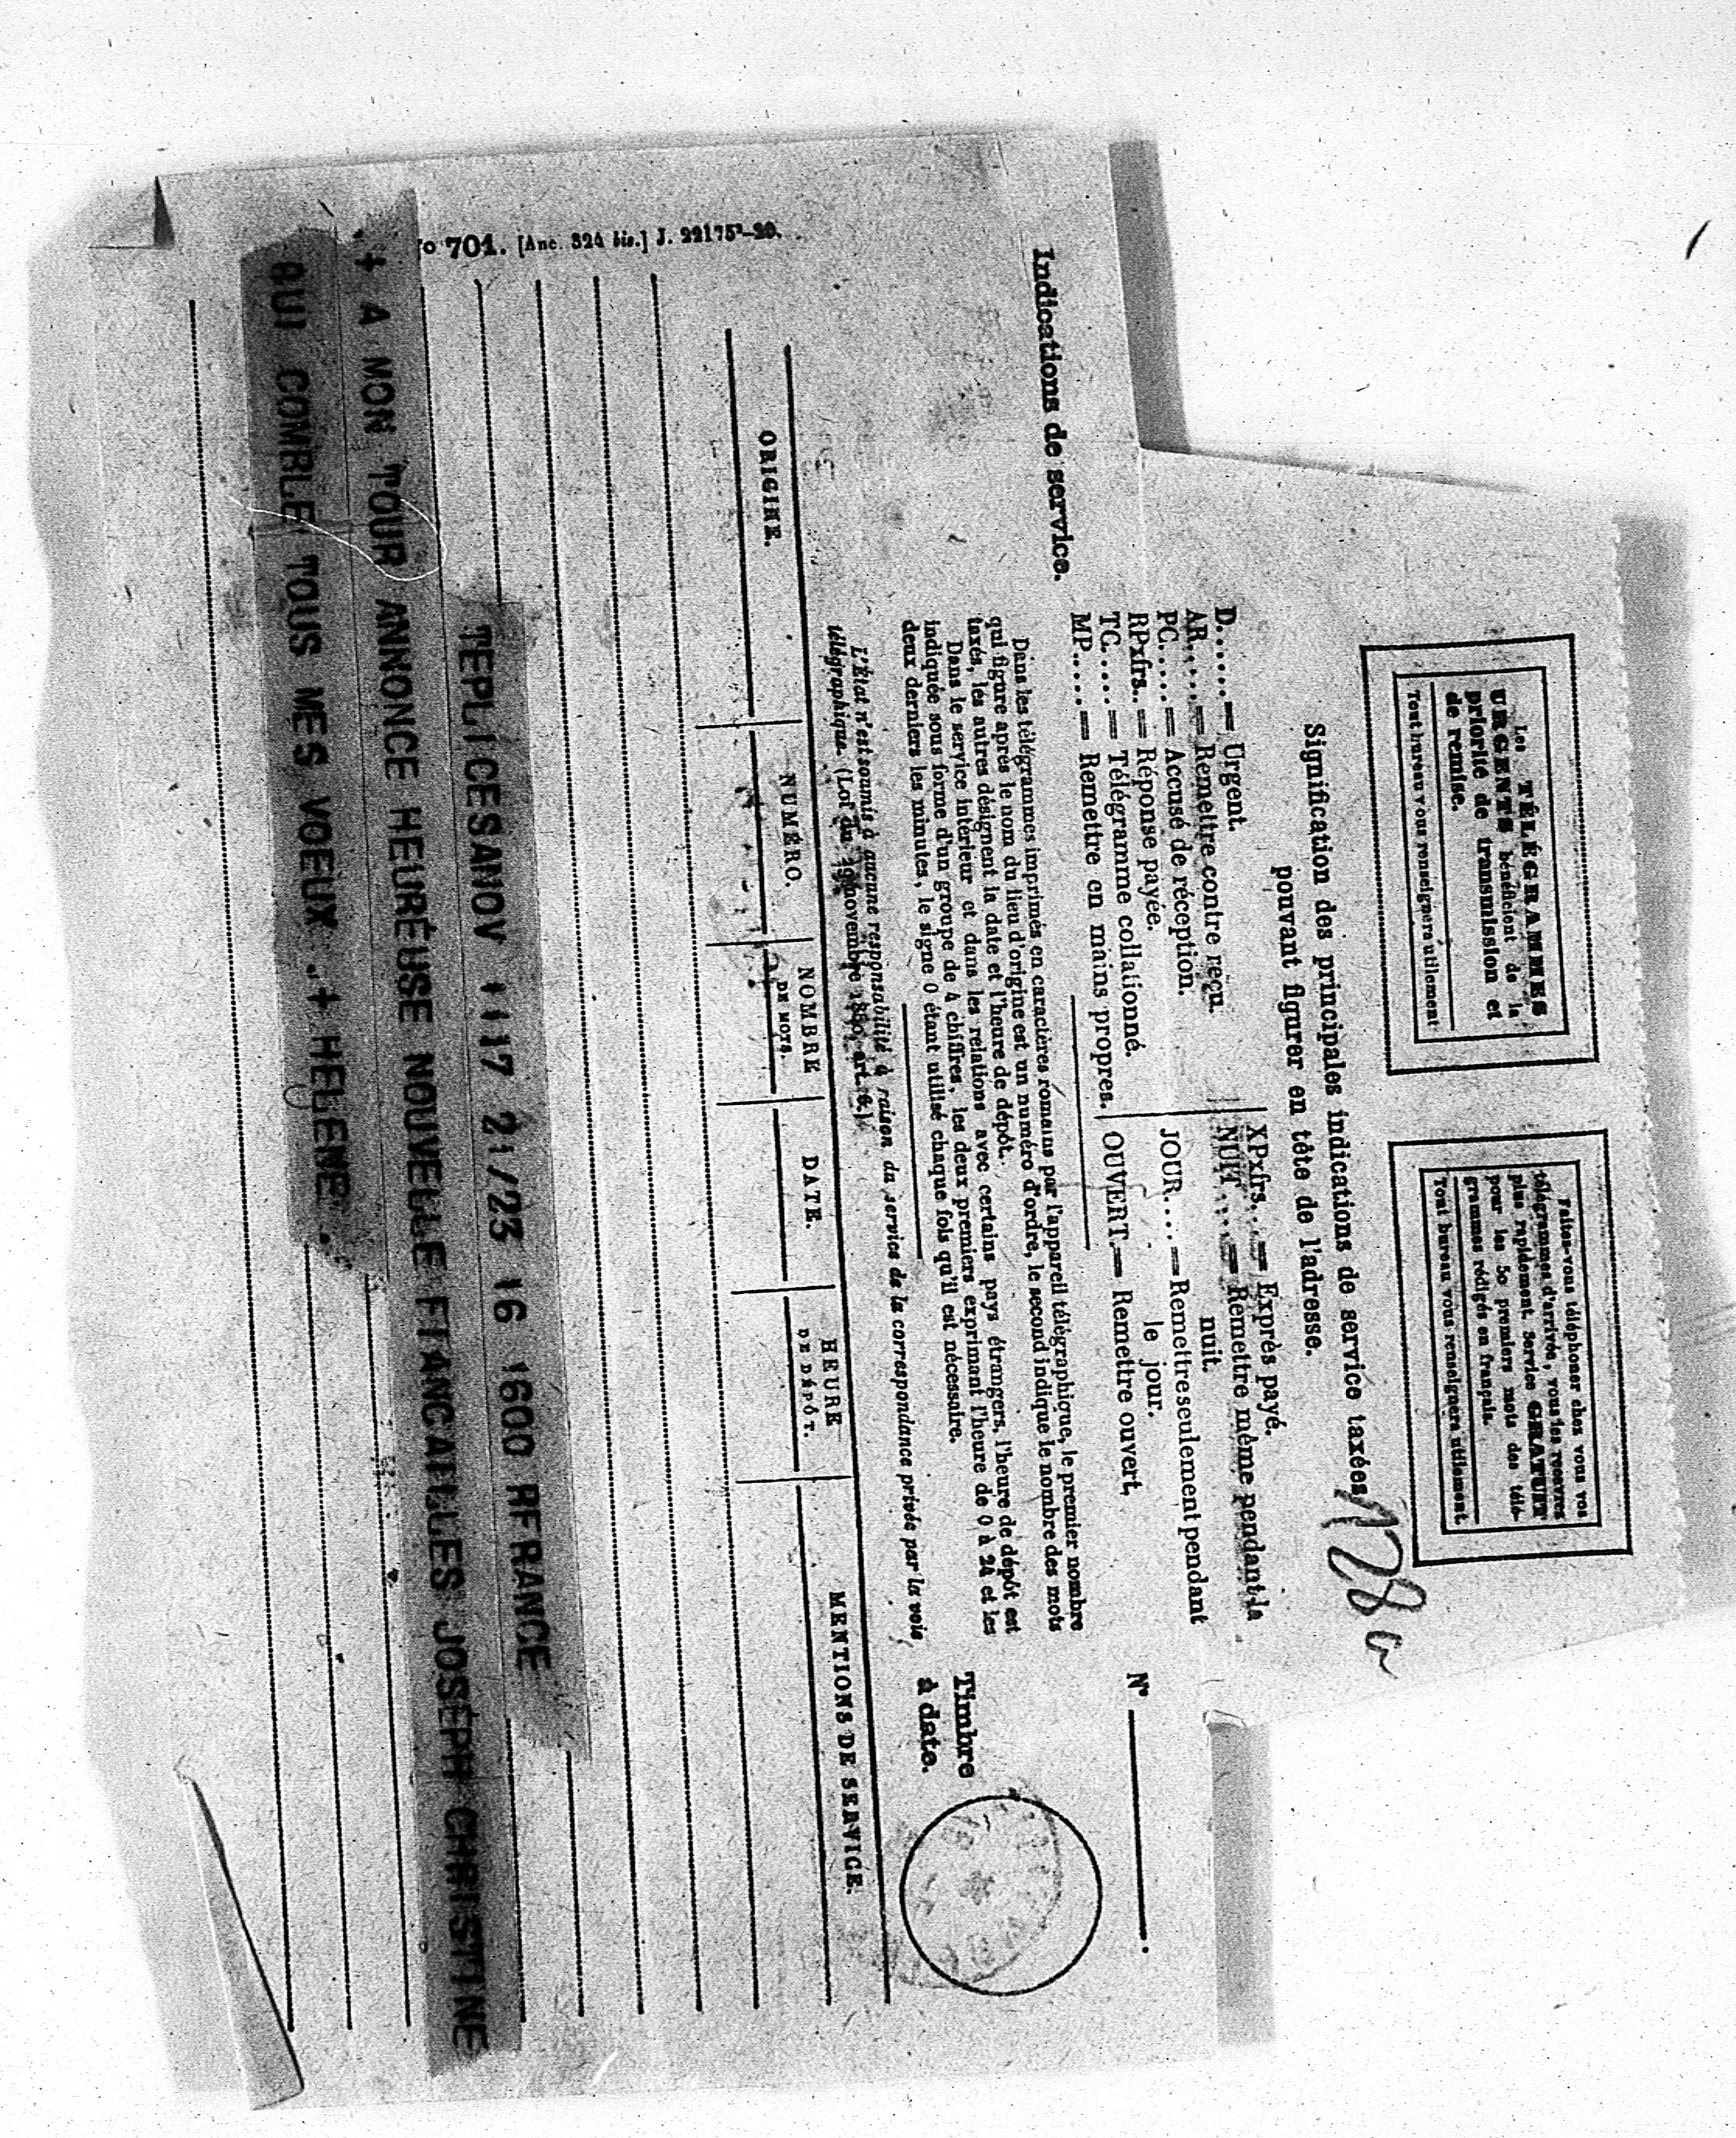 Les TÉLÉGRAMMES
URGENTS bénéficient de la
priorité de transmission et
de remise.
Tout bureau vous renseignera utilement
Faites-vous téléphoner chez vous vos
télégrammes d'arrivée, vous les recevrez
plus rapidement. Service GRATUIT
pour les 50 premiers mots des télé-
grammes rédigés en français.
Tout bureau vous renseignera utilement
Signification des principales indications de service taxées
pouvant figurer en tête de l'adresse.
128
Indications de service.
D......= Urgent.
AR.....= Remettre contre reçu.
PC.....= Accusé de réception.
RPxfrs..= Réponse payée.
TC.....= Télégramme collationné.
MP.....= Remettre en mains propres.
XPxfrs...= Exprès payé.
NUIT....= Remettre même pendant la
nuit.
JOUR....= Remettre seulement pendant
le jour.
OUVERT.= Remettre ouvert
N°
Timbre
à date.
Dans les télégrammes imprimés en caractères romains par l'appareil télégraphique, le premier nombre
qui figure après le nom du lieu d'origine est un numéro d'ordre, le second indique le nombre des mots
taxés, les autres désignent la date et l'heure de dépôt.
Dans le service intérieur et dans les relations avec certains pays étrangers, l'heure de dépôt est
indiquée sous forme d'un groupe de 4 chiffres, les deux premiers exprimant l'heure de 0 à 24 et les
deux derniers les minutes, le signe 0 étant utilisé chaque fois qu'il est nécessaire.
L'État n'est soumis à aucune responsabilité à raison du service de la correspondance privée par la voie
télégraphique. (Loi du novembre 1850, art. 6.)
ORIGINE.
NUMÉRO.
NOMBRE
DE MOTS.
DATE.
HEURE
DE DÉPÔT.
MENTIONS DE SERVICE.
No 701. [Anc. 324 bis.] J. 22175
TEPLICESANOV 1117 21/23 16 1600 RFRANCE
+ A MON TOUR ANNONCE HEUREUSE NOUVELLE FIANCAILLES JOSEPH CHRISTINE
QUI COMBLE TOUS MES VOEUX .+ HELENE .